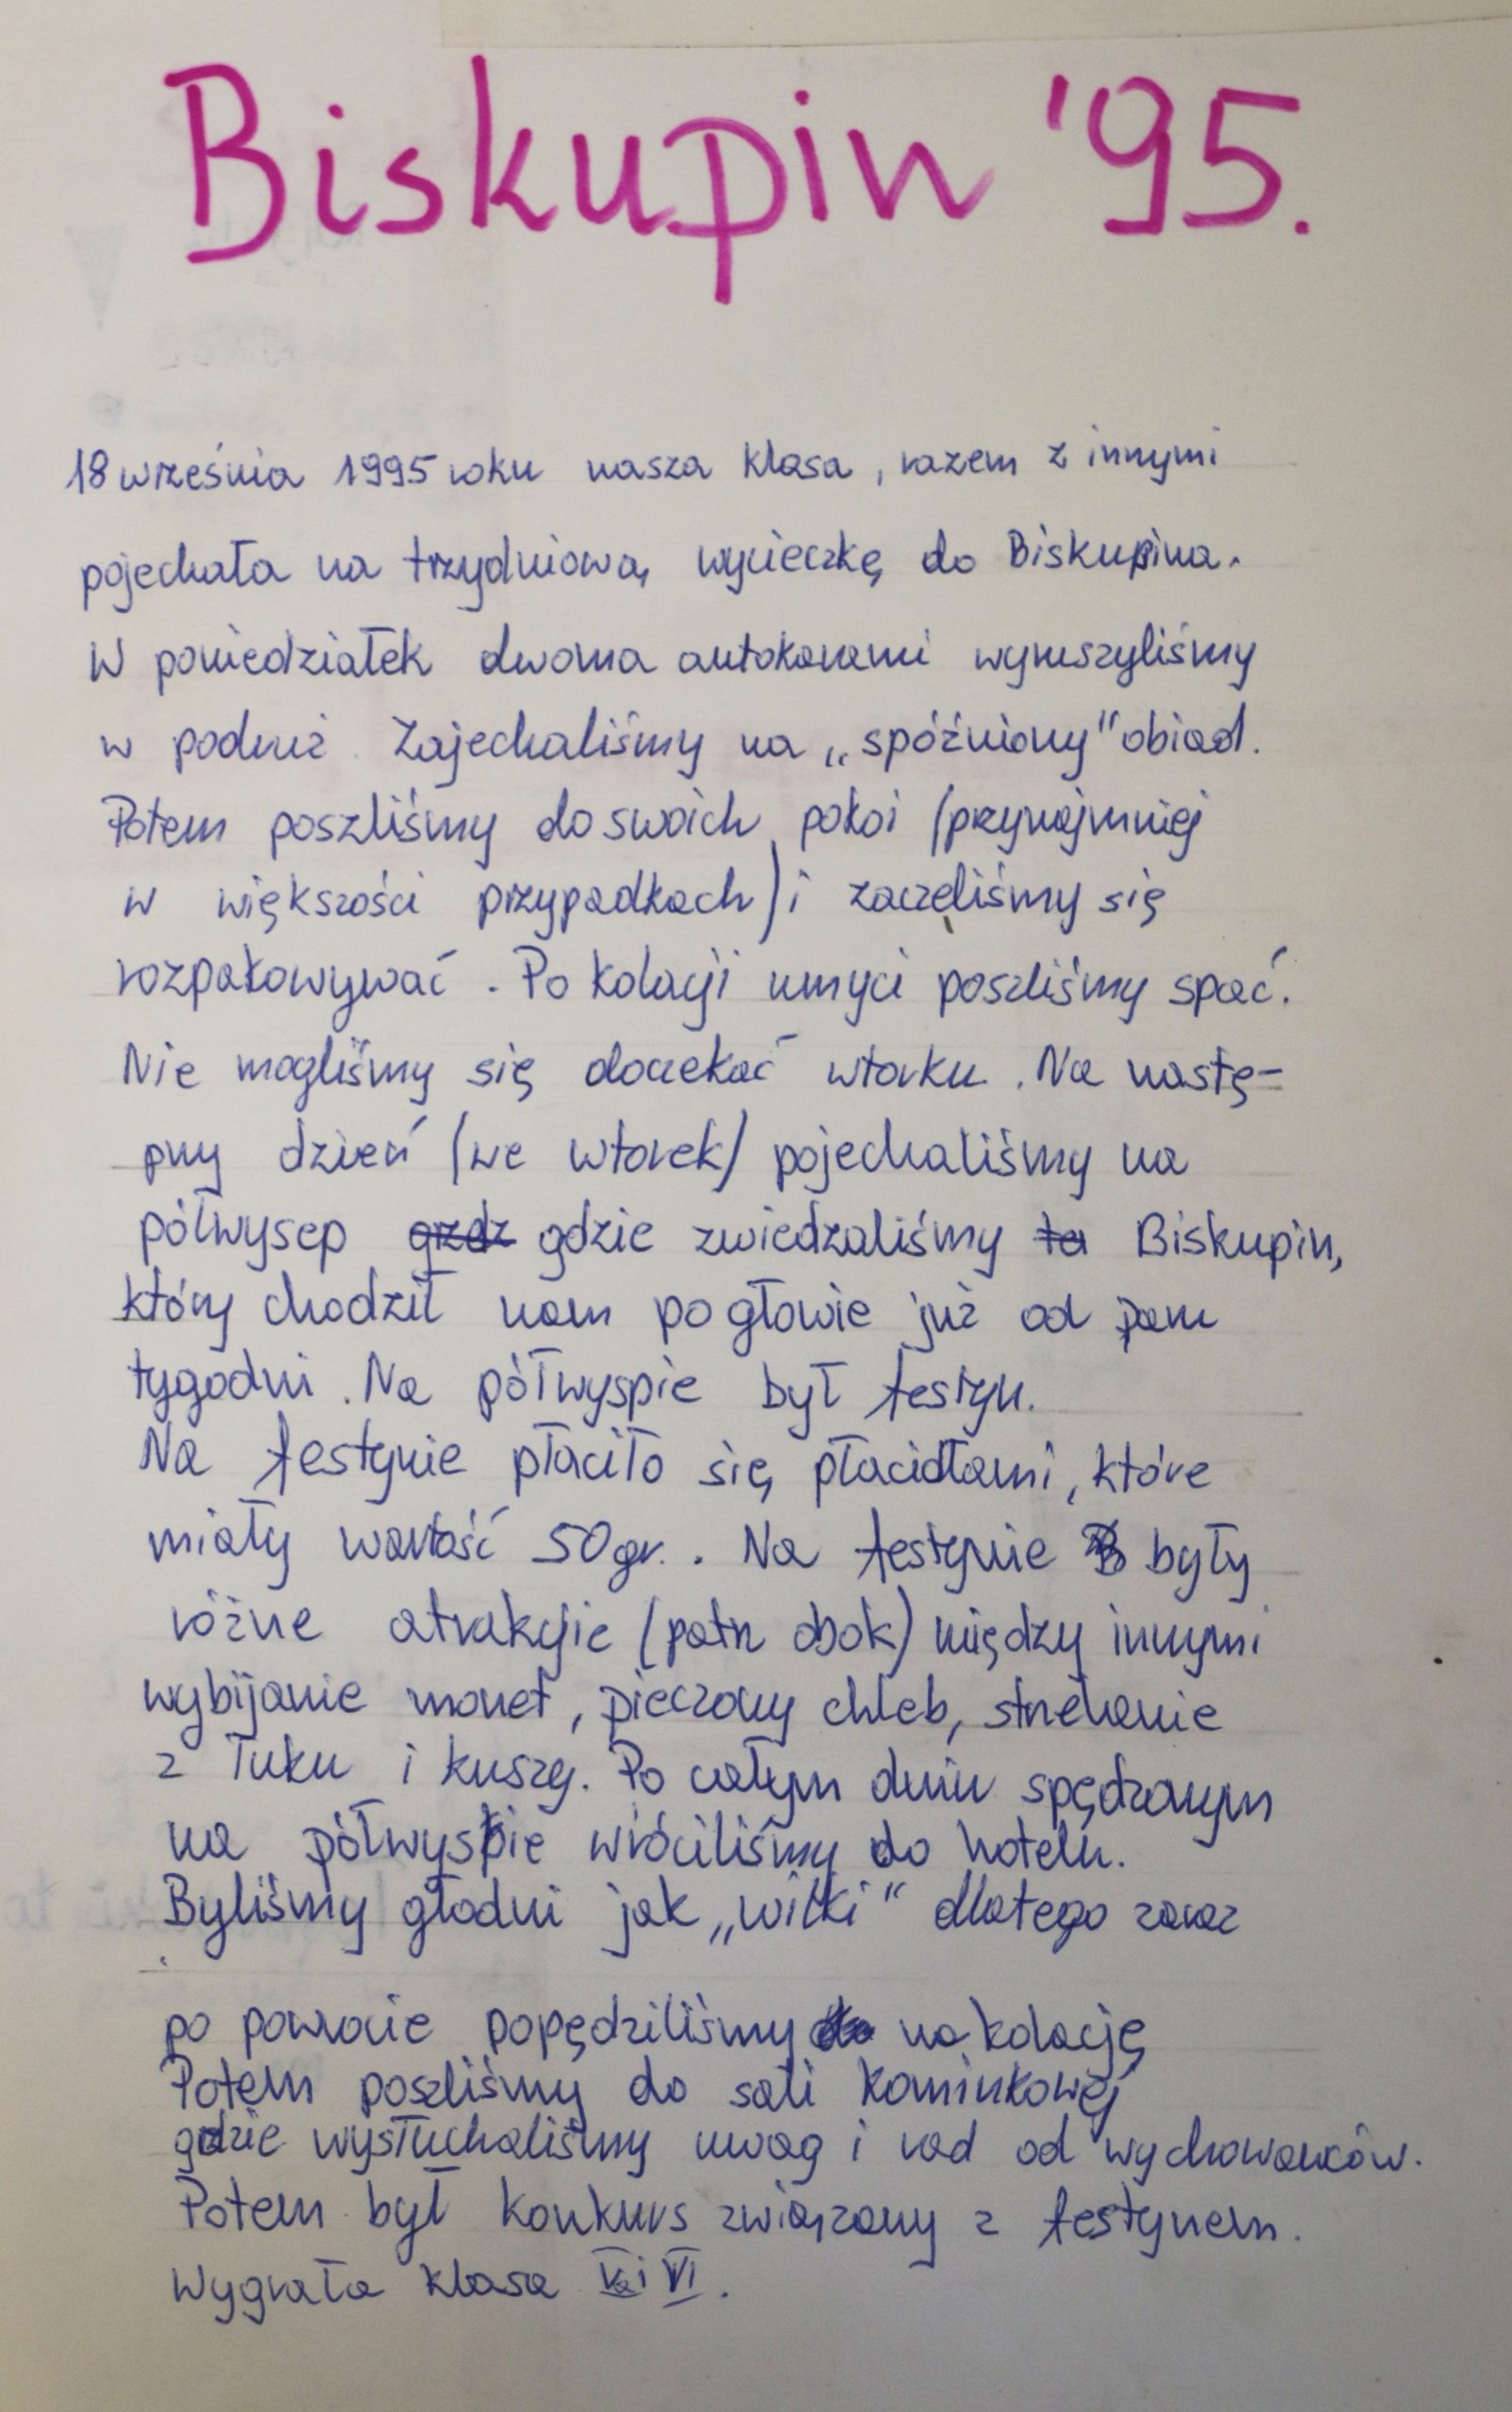 Biskupin '95.
18 września 1995 roku nasza klasa, razem z innymi
pojechała na trzydniową wycieczkę do Biskupina.
W poniedziałek dwoma autokarami wyruszyliśmy
w podróż. Zajechaliśmy na „spóźniony" obiad.
Potem poszliśmy do swoich pokoi (przynajmniej
w większości przypadkach) i zaczęliśmy się
rozpakowywać. Po kolacji umyci poszliśmy spać.
Nie mogliśmy się doczekać wtorku. Na nastę-
pny dzień (we wtorek) pojechaliśmy na
półwysep gdzie zwiedzaliśmy Biskupin,
który chodził nam po głowie już od paru
tygodni. Na półwyspie był festyn.
Na festynie płaciło się płacidłami, które
miały wartość 50gr.. Na festynie były
różne atrakcjie (patrz obok) między innymi
wybijanie monet, pieczony chleb, strzelanie
z łuku i kuszy. Po całym dniu spędzonym
na półwyspie wróciliśmy do hotelu.
Byliśmy głodni jak „wilki" dlatego zaraz
po powrocie popędziliśmy na kolację
Potem poszliśmy do sali kominkowej
gdzie wysłuchaliśmy uwag i rad od wychowawców.
Potem był konkurs związany z festynem.
Wygrała klasa Va i VI.